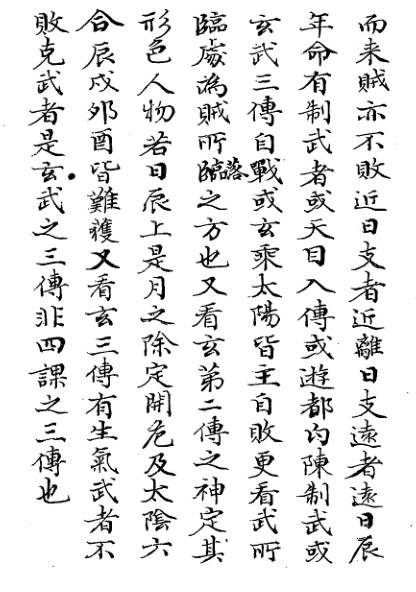 而来賊亦不敗近日支者近離日支遠者遠日辰
年命有制武者或天目入傳或遊都勾陳制武或
玄武三傳自戰或玄乘太陽皆主自敗更看武所
臨處為賊所臨落之方也又看玄第二傳之神定其
形色人物若日辰上是月之除定開危及太陰六
合辰戍夘酉皆難獲又看玄三傳有生氣武者不
敗克武者是玄武之三傳非四課之三傳也